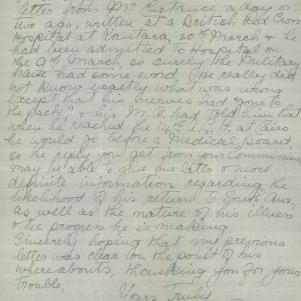 letter from Mr Eustance a day or
two ago, written at a British Red Cross
Hospital at Kantara, 20th March & he
had been admitted to Hospital on
the 9th March, so surely the Military
have had some word. He really did
not know exactly what was wrong
except that his nerves had "gone to
the pack," & his M.O. had told him that
when he reached the 14th A.G.H. at Cairo
he would go before a Medical Board
so the reply you get from your Commissioner
may be able to give me later & more
definite information regarding the
likelihood of his return to South Aus.
as well as the nature of his illness
& the progress he is making.
Sincerely hoping that my previous
letter was clear on the point of his
whereabouts, thanking you for your
trouble,
Yours Truly